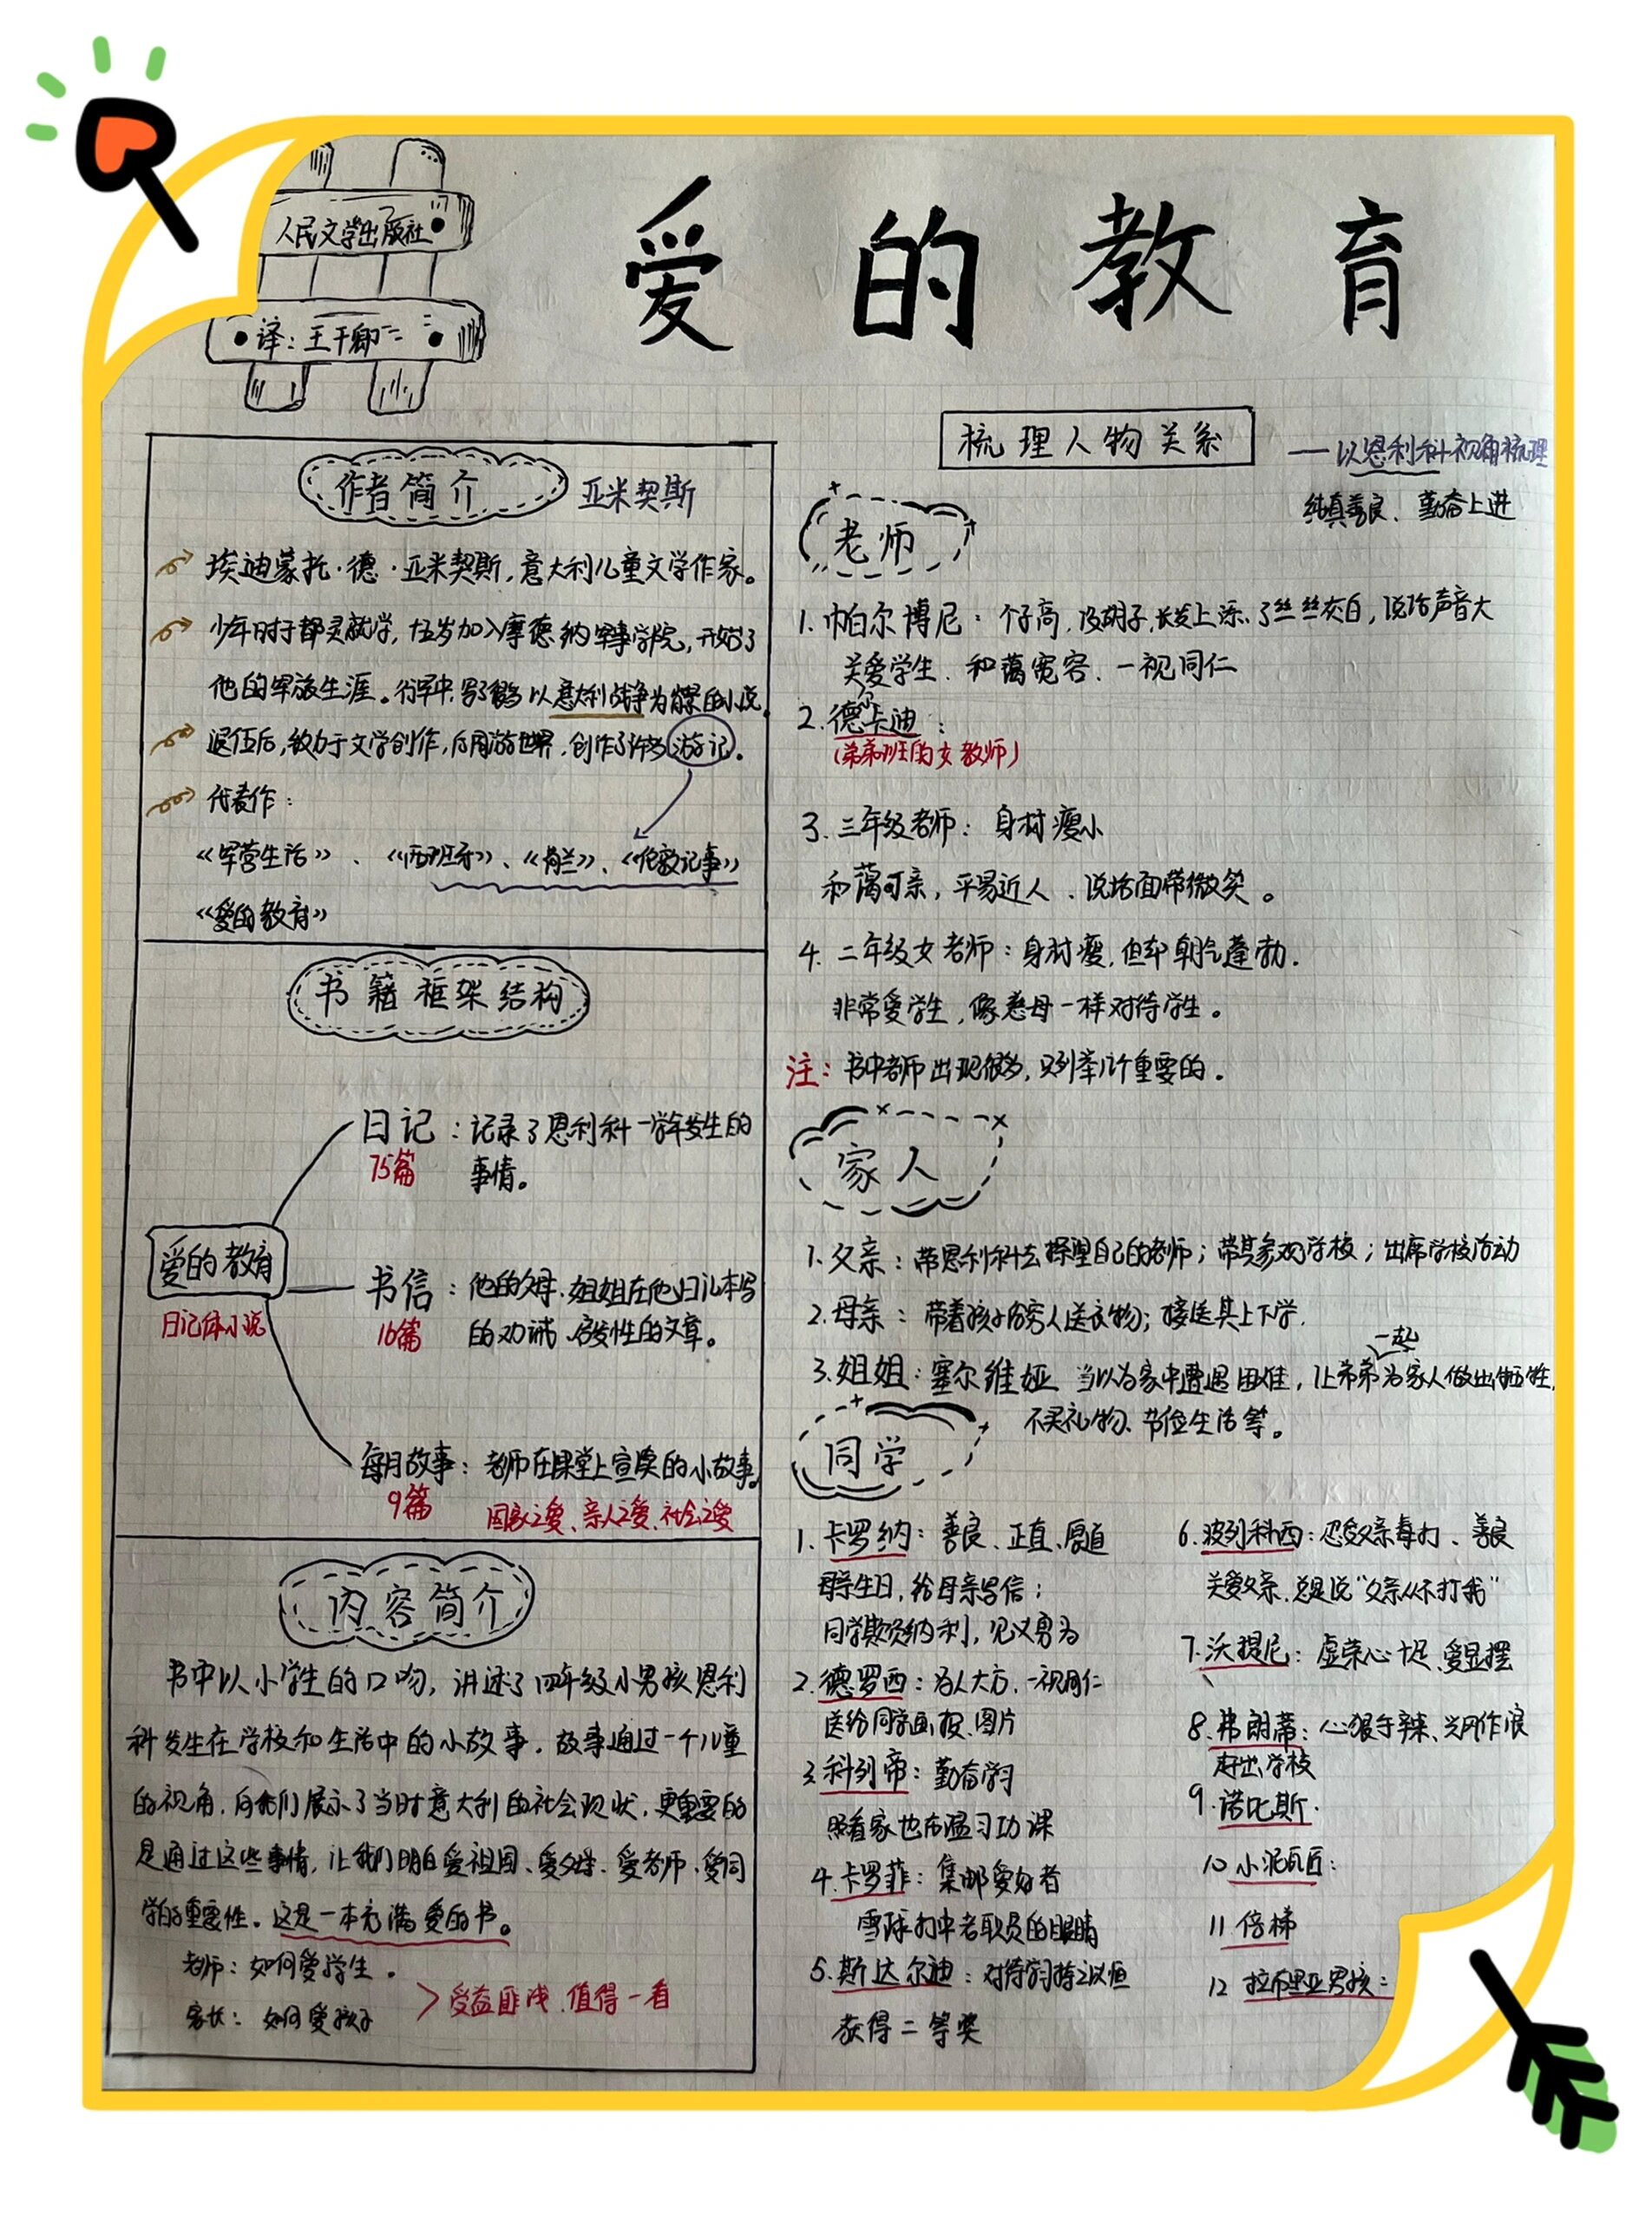 人民文学出版社
译：王干卿
爱的教育
作者简介 亚米契斯
埃迪蒙托·德·亚米契斯，意大利儿童文学作家。
少年时于都灵就学，十五岁加入摩德纳军事学院，开始了
他的军旅生涯。行军中，写了多篇以意大利战争为背景的小说。
退伍后，致力于文学创作，后周游世界，创作了许多游记。
代表作：
《军营生活》、《西班牙》、《荷兰》、《伦敦记事》
《爱的教育》
书籍框架结构
爱的教育
日记体小说
日记：记录了恩利科一学年发生的
75篇 事情。
书信：他的父母、姐姐在他日记本写
16篇 的劝诫、启发性的文章。
每月故事：老师在课堂上宣读的小故事。
9篇 国家之爱、亲人之爱、社会之爱
内容简介
书中以小学生的口吻，讲述了四年级小男孩恩利
科发生在学校和生活中的小故事，故事通过一个儿童
的视角，向我们展示了当时意大利的社会现状，更重要的
是通过这些事情，让我们明白爱祖国、爱父母、爱老师、爱同
学的重要性。这是一本充满爱的书。
老师：如何爱学生。
家长：如何爱孩子
受益匪浅、值得一看
梳理人物关系
——以恩利科视角梳理
纯真善良、勤奋上进
老师
1. 帕尔博尼：个子高，没胡子，长发上添了丝丝灰白，说话声音大
关爱学生、和蔼宽容、一视同仁
2. 德尔卡迪：
（弟弟班的女教师）
3. 三年级老师：身材瘦小
和蔼可亲，平易近人、说话面带微笑。
4. 二年级女老师：身材瘦，但却朝气蓬勃.
非常爱学生，像慈母一样对待学生。
注：书中老师出现很多，只列举几个重要的.
家人
1. 父亲：带恩利科去探望自己的老师；带其参观学校；出席学校活动
2. 母亲：带着孩子给穷人送衣物；接送其上下学.
3. 姐姐：塞尔维娅 当以为家中遭遇困难，让弟弟一起为家人做出牺牲,
不买礼物、节俭生活等。
同学
1. 卡罗纳：善良、正直、勇敢
母亲生日，给母亲写信；
同学欺负纳利，见义勇为
2. 德罗西：为人大方，一视同仁
送给同学画报、图片
3. 科列帝：勤奋学习
照看家也在温习功课
4. 卡罗菲：集邮爱好者
雪球打中老职员的眼睛
5. 斯达尔迪：对待学习持之以恒
获得二等奖
6. 波列科西：忍受父亲毒打、善良
关爱父亲，总是说“父亲从不打我”
7. 沃提尼：虚荣心十足、爱显摆
8. 弗朗蒂：心狠手辣、兴风作浪
赶出学校
9. 诺比斯.
10 小泥瓦匠：
11 倍梯
12 拉布里亚男孩：